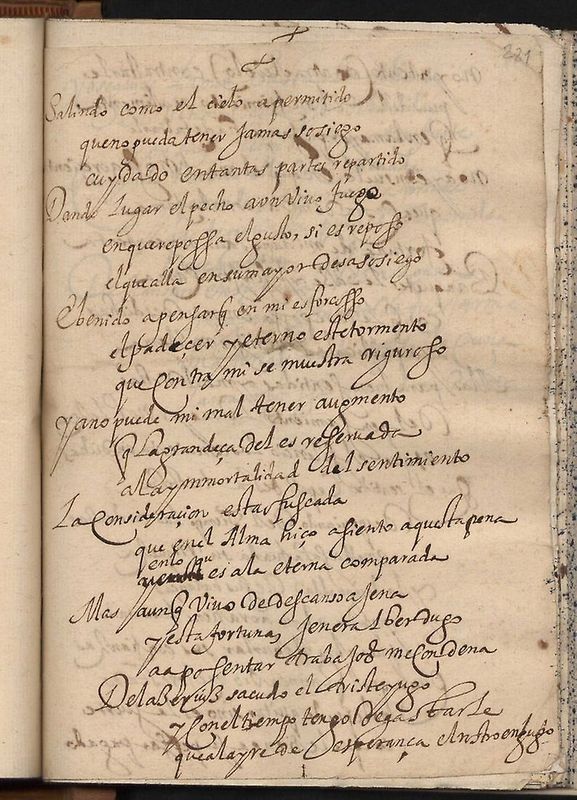 221
Salindo como el cielo a permitido
que no pueda tener jamas sosiego
cuydado en tantas partes repartido
Dando lugar el pecho a un vivo fuego
en que repossa el gusto, si es reposo
el que alla en su mayor desasosiego
E benido a pensar q en mi es forcosso
el padeçer y eterno este tormento
que contra mi se muestra riguroso
ya no puede mi mal tener augmento
q la grandeça del es reservada
a la ynmortalidad del sentimiento
La Consideraçion esta fuscada
que en el Alma hiço asiento aquesta pena
en lo qu es a la eterna comparada
Mas aunq vivo de descanso ajena
y esta fortuna, berdugo
a aposentar trabajos me condena
De la sacudo el triste yugo
y con el tiempo tengo de gastarle
que al ayre de esperança